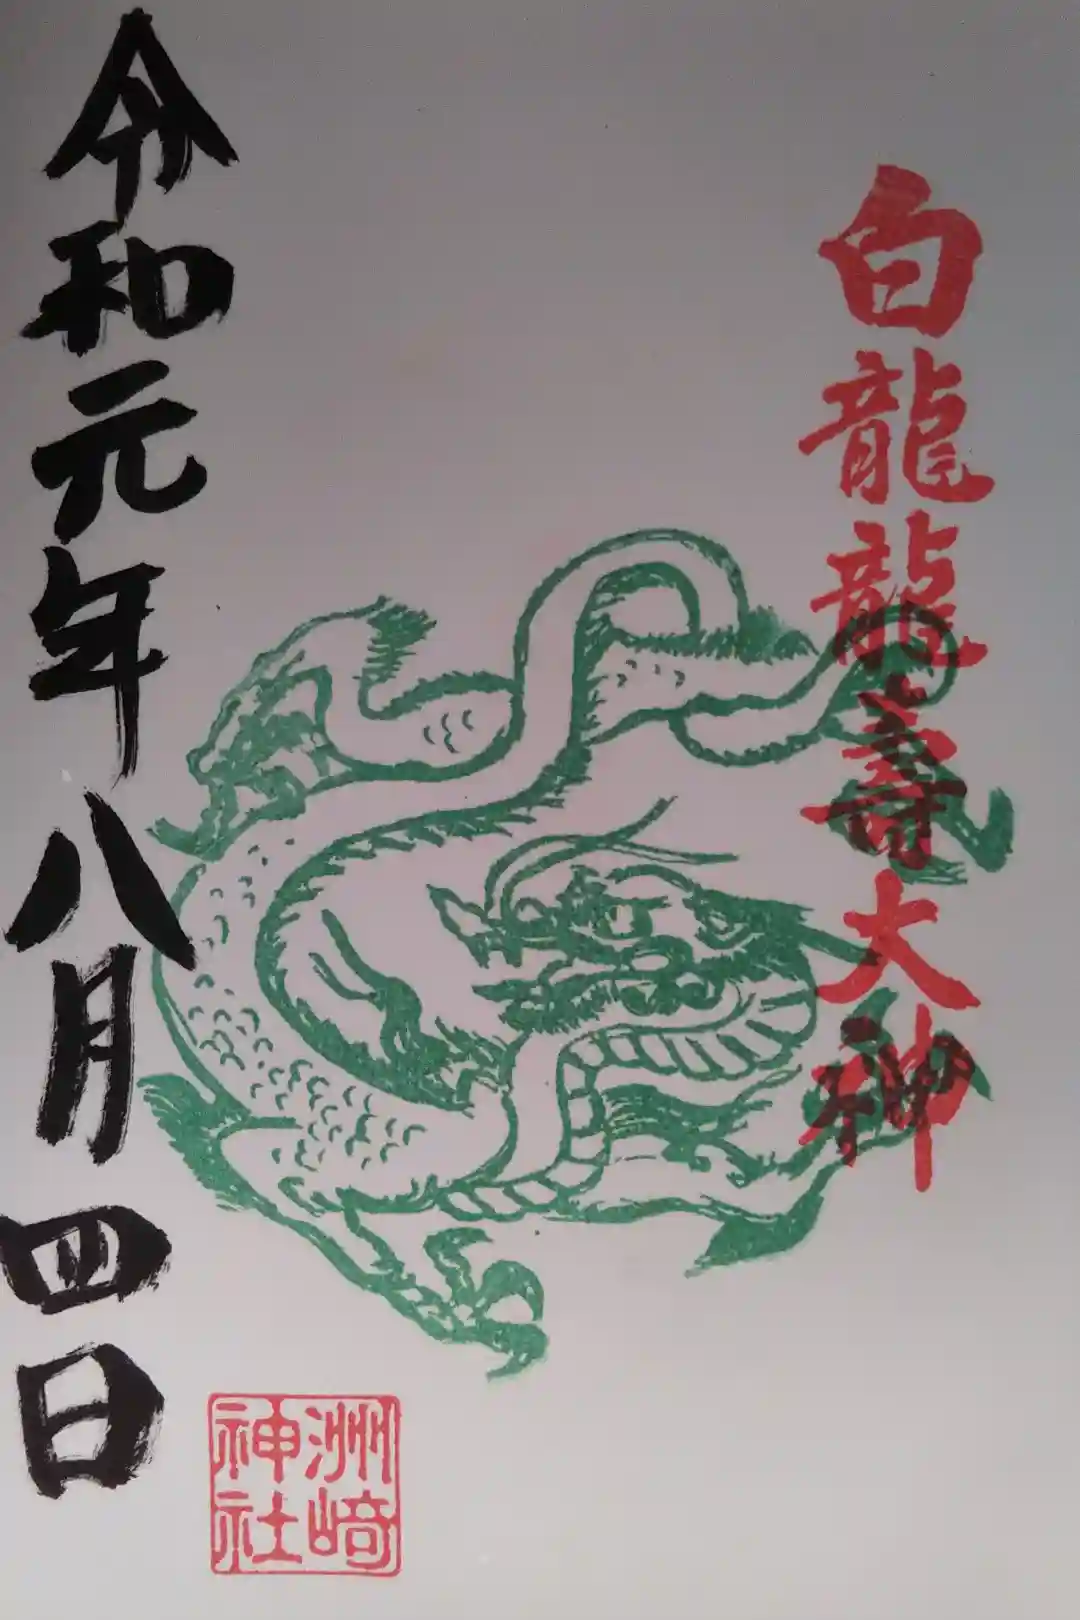 白龍龍壽大神
令和元年八月四日
洲崎
神社